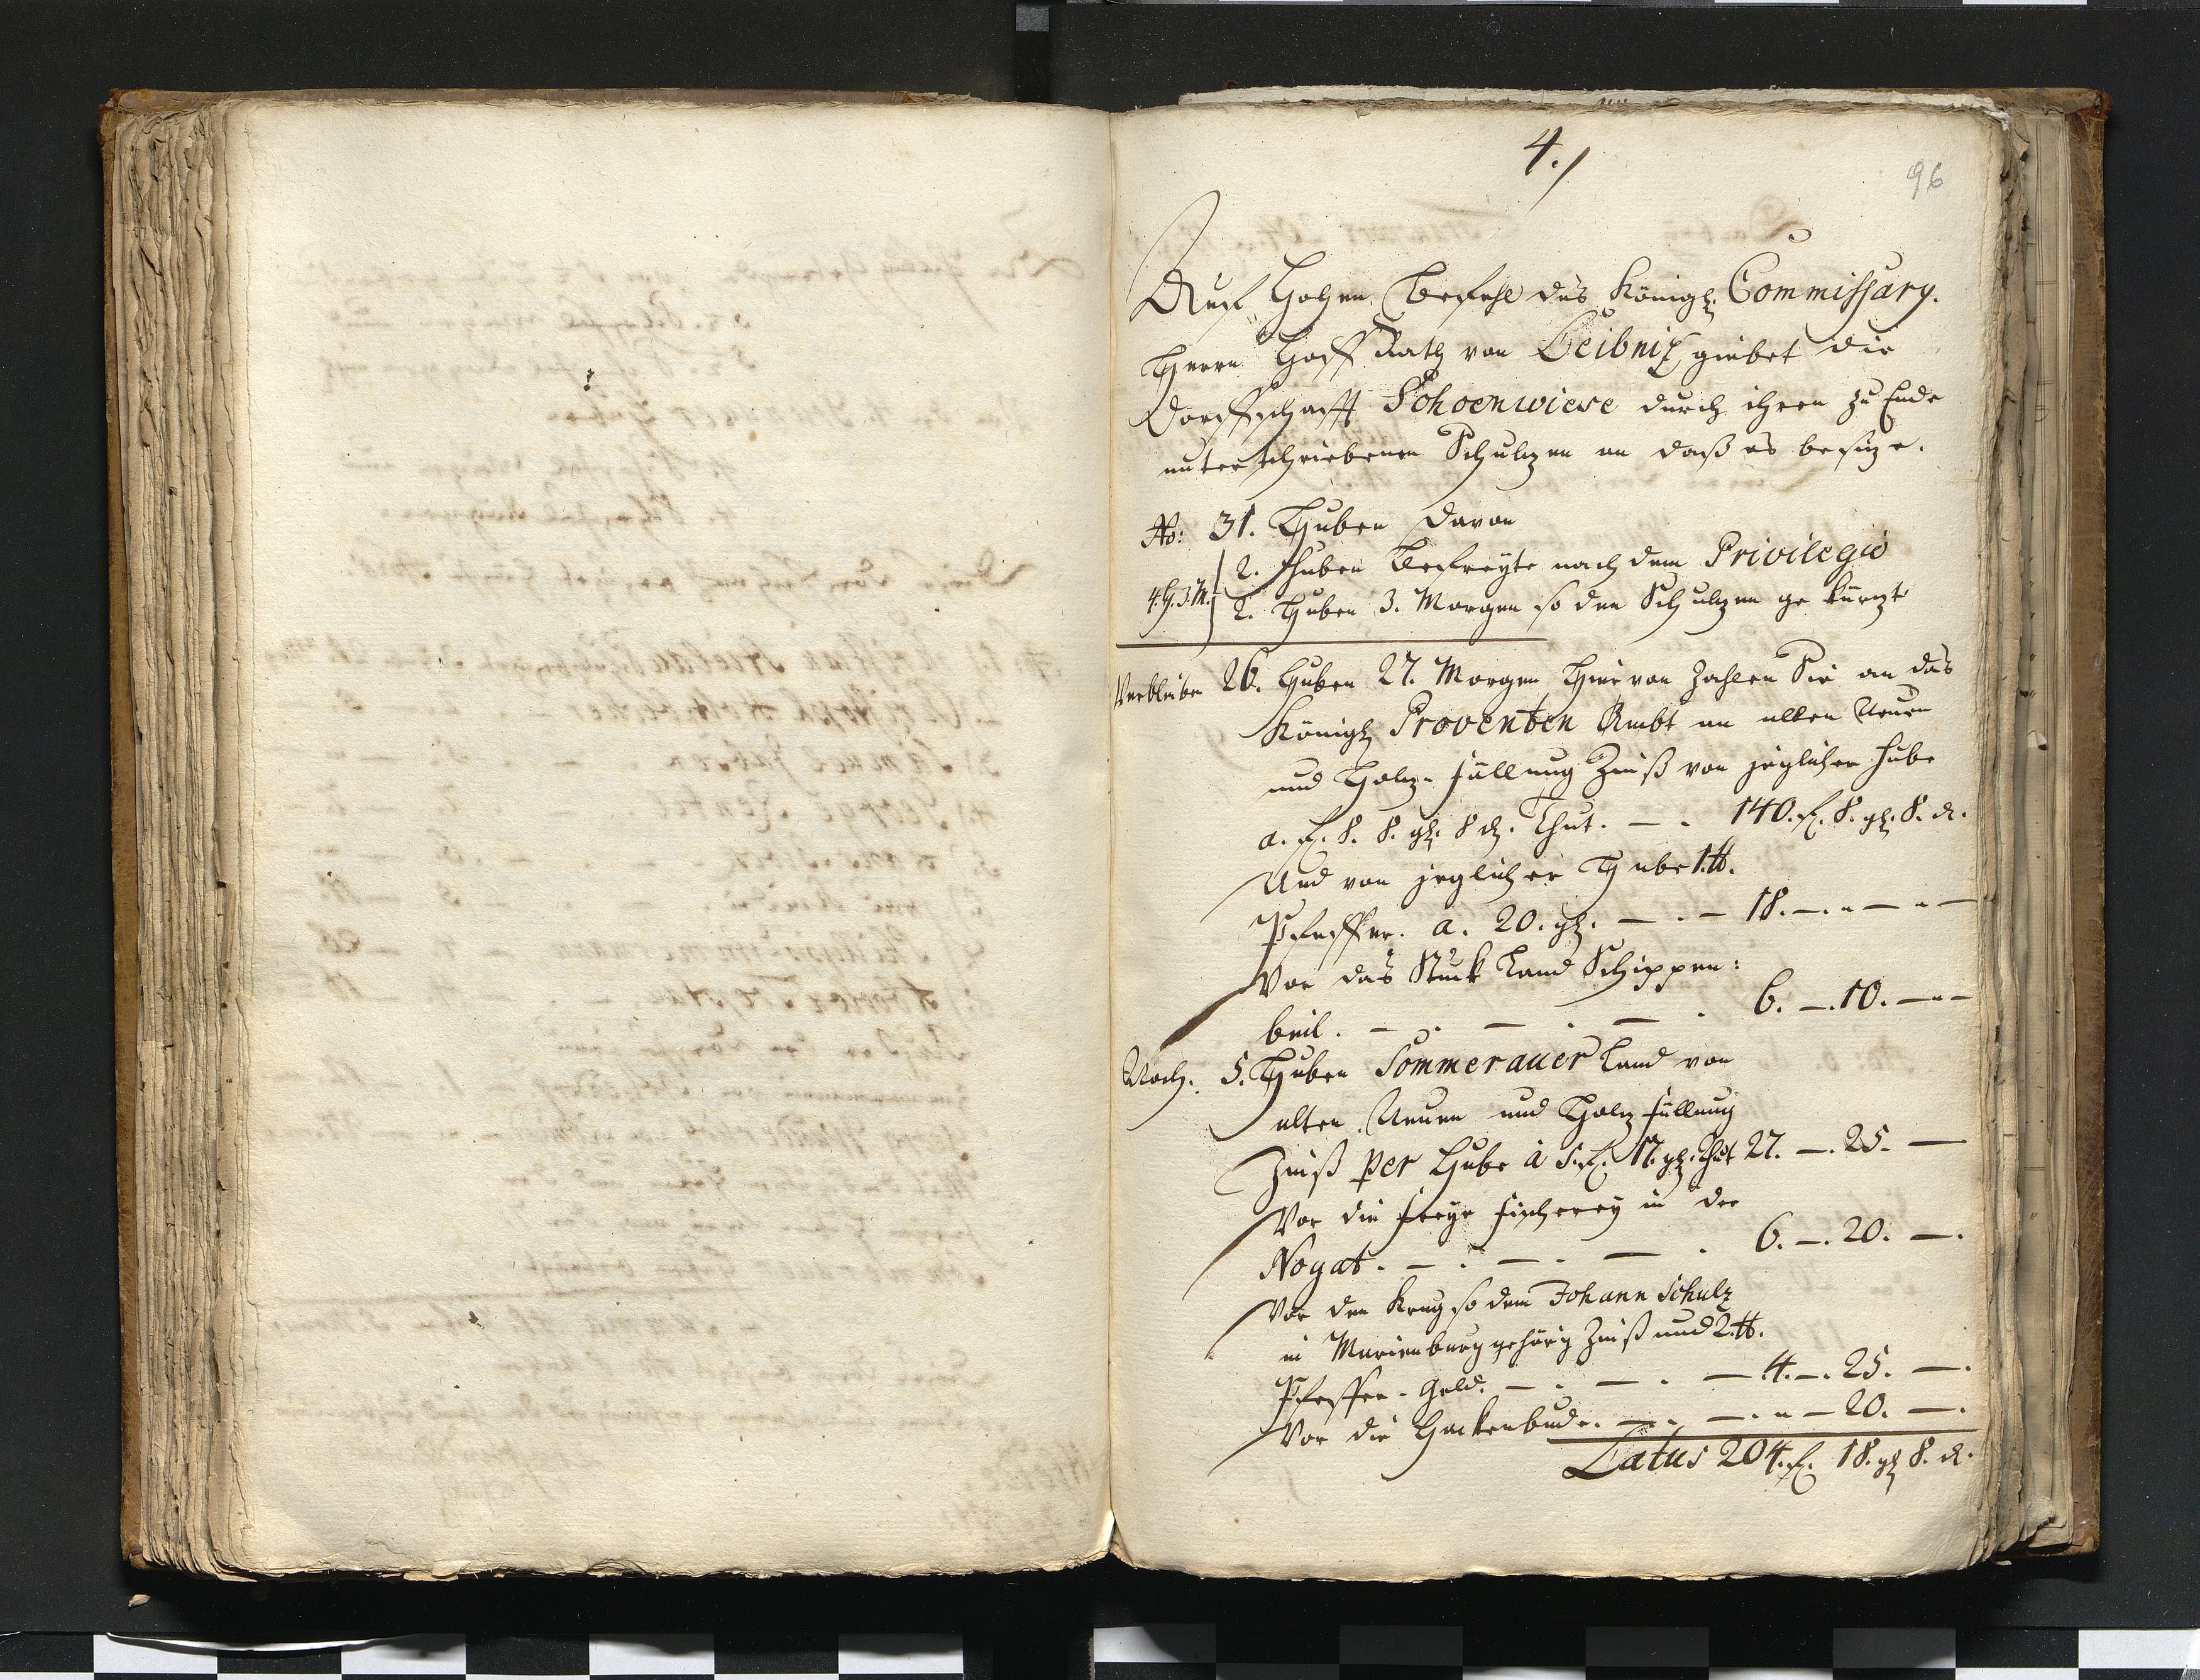 4./
96
Auf Hohen Befehl des Königl. Commissary.
Herrn Hoff Rath von Leibniz giebet die
Dorffschafft Schoenwiese durch ihren zu Ende
unterschriebenen Schulzen an daß es besize.
No: 31. Huben davon
2. Huben Befreyte nach dem Privilegio
4.H.3.M. 2. Huben 3. Morgen so den Schulzen gekürzt
Verbleiben 26. Huben 27. Morgen Hievon Zahlen Sie an das
Königl Proventen Ambt an alten Neuen
und Holz-fällung Zinß von jeglicher Hube
a. f. 8. gl. 8 d. Thut. — . 140. f. 8. gl. 8. d.
Und von jeglicher Hube 1. tt.
Pfeffer. a. 20. gl. — . — 18. — . — . —
Vor das Stück Land Schippen:
beil. — . — . — . 6. — . 10. — . —
Noch. 5. Huben Sommerauer Land von
alten. Neuen und Holz fällung
Zinß per Hube à 5. f. 17. gl. thut 27. — . 25. —
Vor die freye fischerey in der
Nogat. — . — . — . 6. — . 20. — .
Vor den Krug so dem Johann Schulz
in Marienburg gehörig Zinß und 2. tt.
Pfeffer-Geld. — . — . — 4. — . 25. — .
Vor die Hackenbude. — . — . — 20. — .
Latus 204. f. 18. gl 8. d.